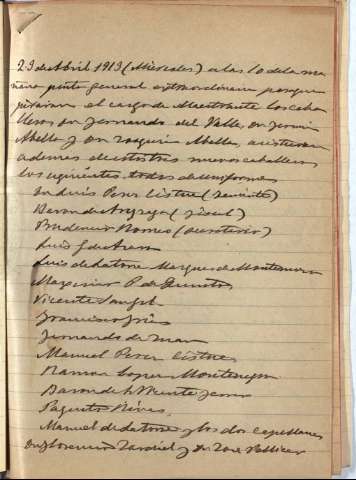 23 de Abril 1913 (Miercoles) a las 10 de la ma
ñana junta general extraordinaria para que
juraran el cargo de Maestrante los caba
lleros Dn Fernando del Valle, Dn Fermin
Abella y Dn Joaquin Abella, asistieron
ademas de estos tres nuevos caballeros
los siguientes todos de uniforme
Dn Luis Perez Cistue (teniente)
Baron de (fiscal)
Prudencio Romeo (secretario)
Luis G de
Luis de Latorre Marques de Montemuzo
P de Quinto
Vicente
Francisco
Fernando de
Manuel Perez Cistue
Ramon Lopez Montenegro
Baron de la
Paquito
Manuel de Latorre y los dos capellanes
Dn Florencio y Dn José Pellicer